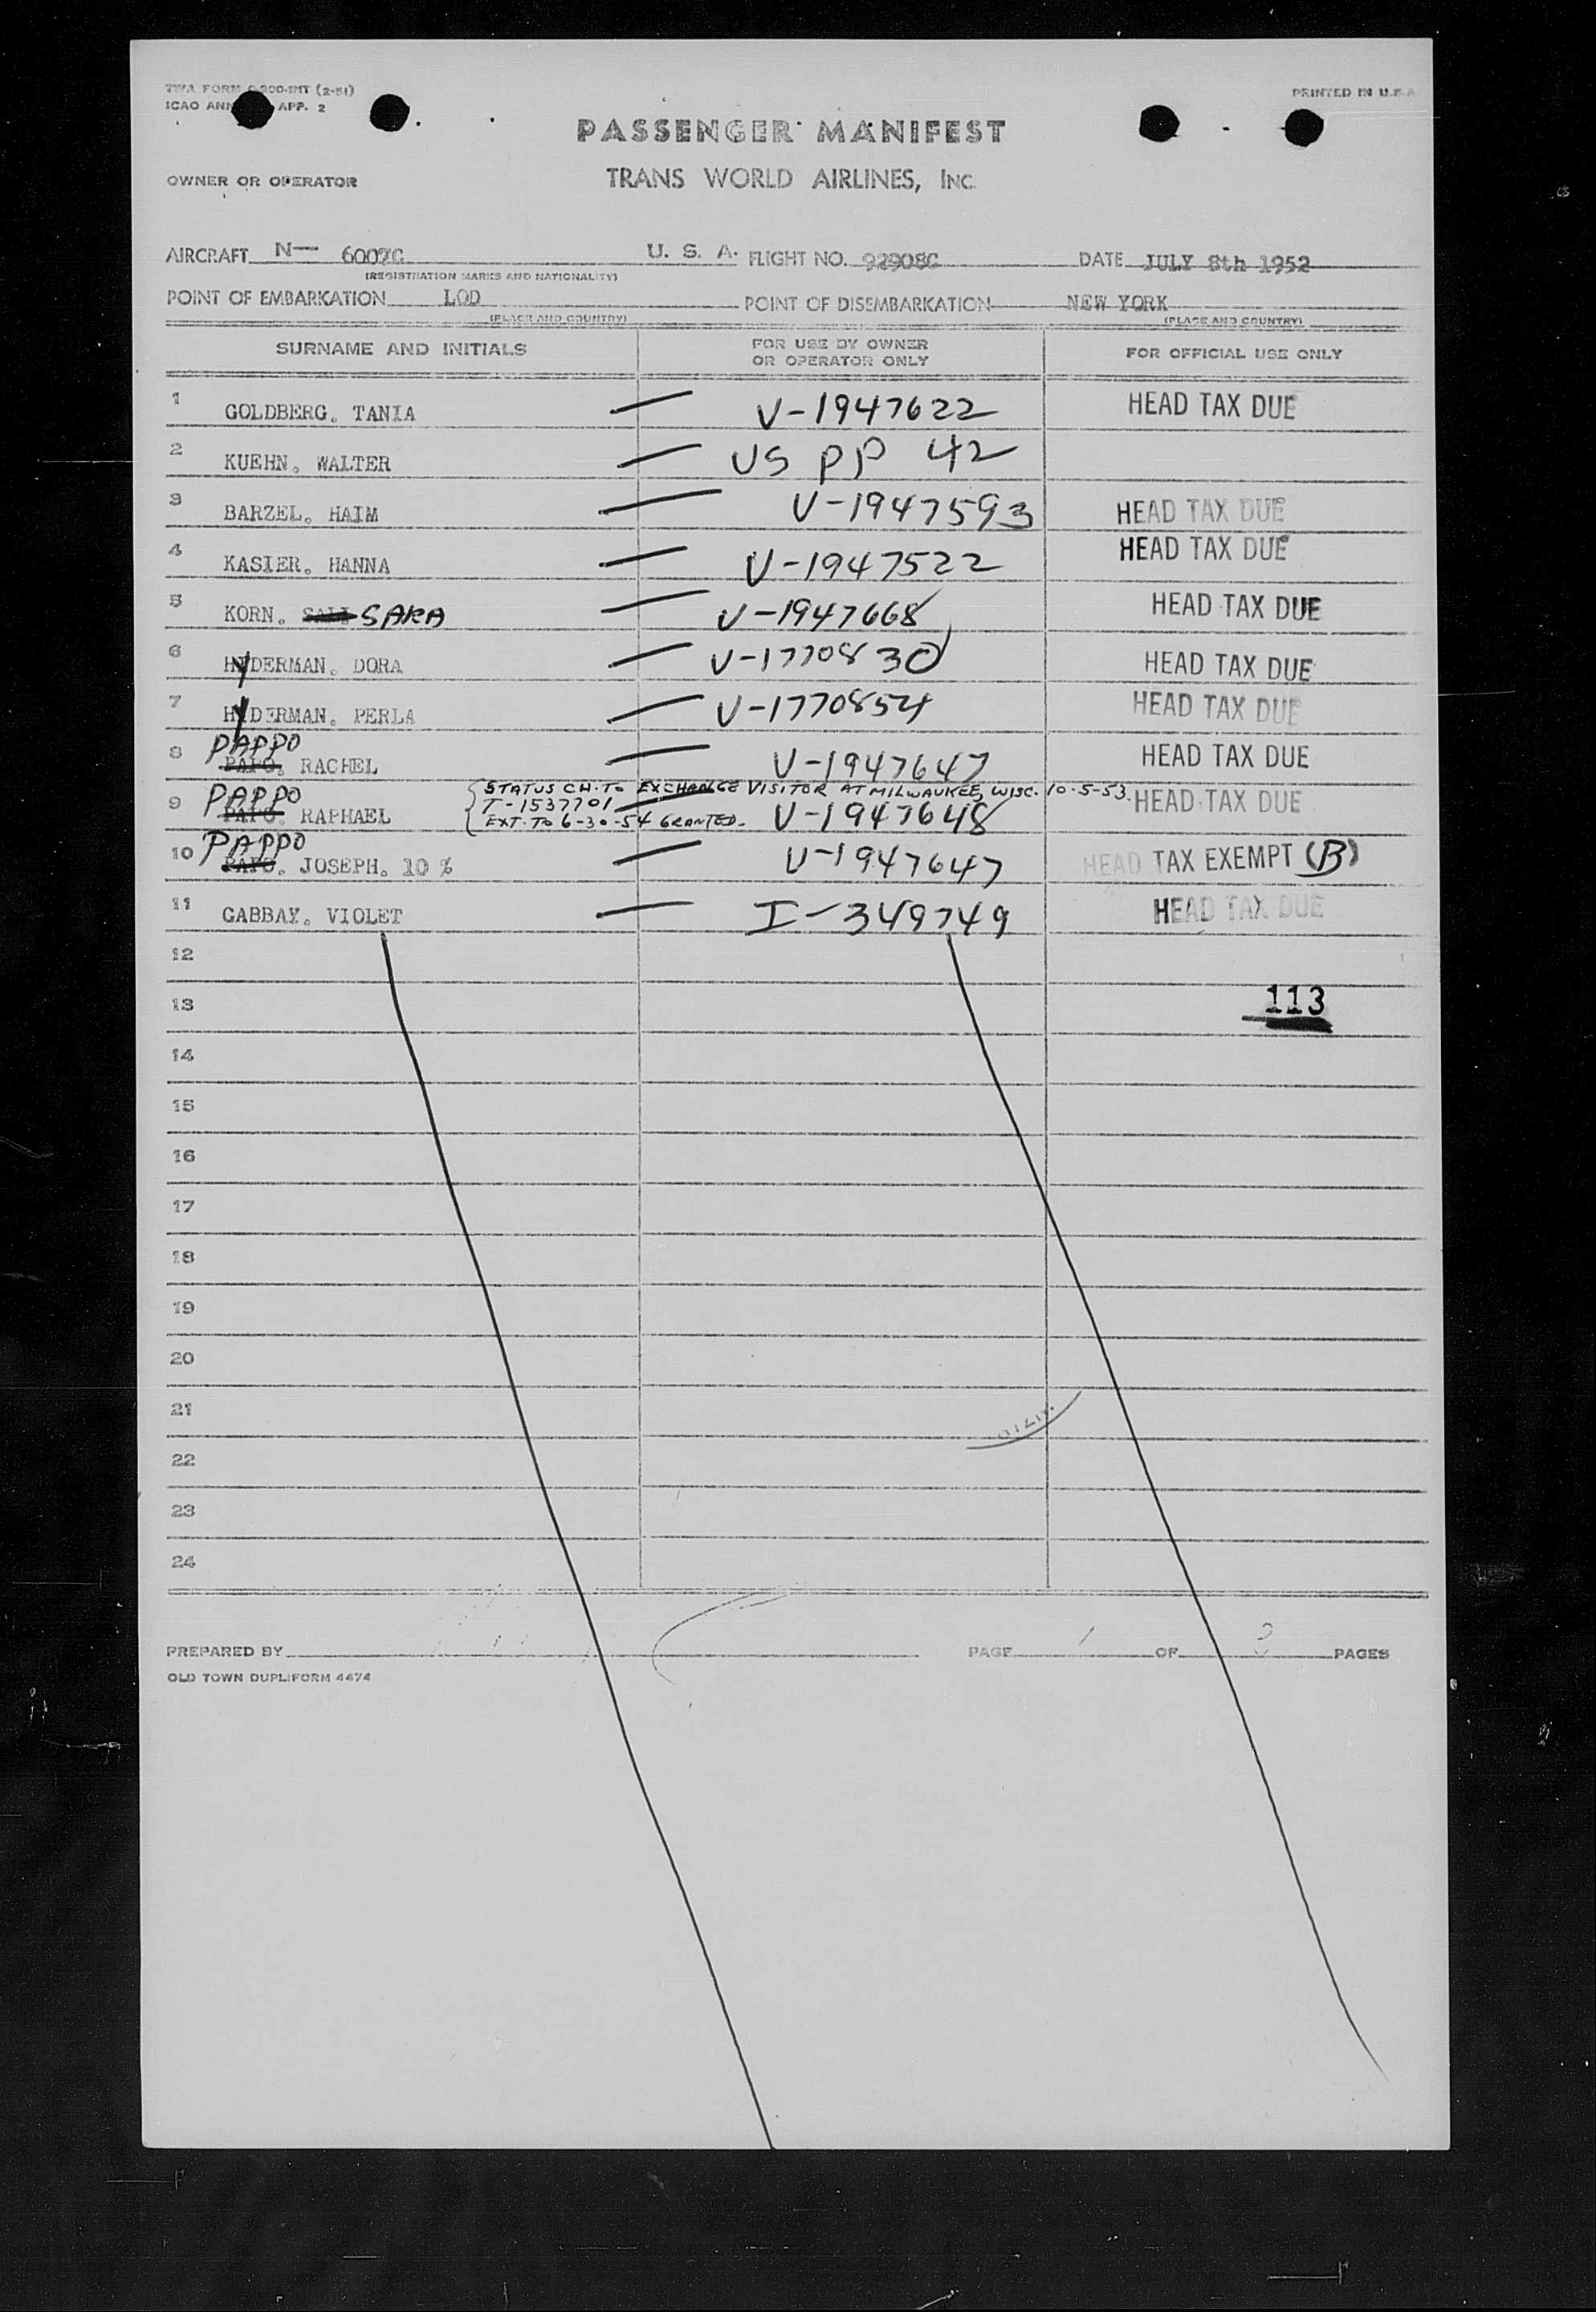 TWA FORM
ICAO ANN APP. 2
PRINTED IN U.S.A.
PASSENGER MANIFEST
TRANS WORLD AIRLINES, INC.
OWNER OR OPERATOR
AIRCRAFT N— 6007C U. S. A. FLIGHT NO. 92908C DATE JULY 8th 1952
(REGISTRATION MARKS AND NATIONALITY)
POINT OF EMBARKATION LOD POINT OF DISEMBARKATION NEW YORK
(PLACE AND COUNTRY) (PLACE AND COUNTRY)
SURNAME AND INITIALS FOR USE BY OWNER OR OPERATOR ONLY FOR OFFICIAL USE ONLY
1 GOLDBERG. TANIA — V-1947622 HEAD TAX DUE
2 KUEHN. WALTER — US PP 42
3 BARZEL. HAIM — V-1947593 HEAD TAX DUE
4 KASIER. HANNA — V-1947522 HEAD TAX DUE
5 KORN. SARA — V-1947668 HEAD TAX DUE
6 HYDERMAN. DORA — V-1770830 HEAD TAX DUE
7 HYDERMAN. PERLA — V-1770854 HEAD TAX DUE
PAPPO
8 PAPO. RACHEL — V-1947647 HEAD TAX DUE
STATUS CH. TO EXCHANGE VISITOR AT MILWAUKEE, WISC. 10-5-53.
PAPPO T-1537701
9 PAPO. RAPHAEL EXT. TO 6-30-54 GRANTED. — V-1947648 HEAD TAX DUE
PAPPO
10 PAPO. JOSEPH. 10 % — V-1947647 HEAD TAX EXEMPT (B)
11 GABBAY. VIOLET — I-349749 HEAD TAX DUE
12
13 113
14
15
16
17
18
19
20
21
22
23
24
PREPARED BY PAGE 1 OF PAGES
OLD TOWN DUPLIFORM 4474